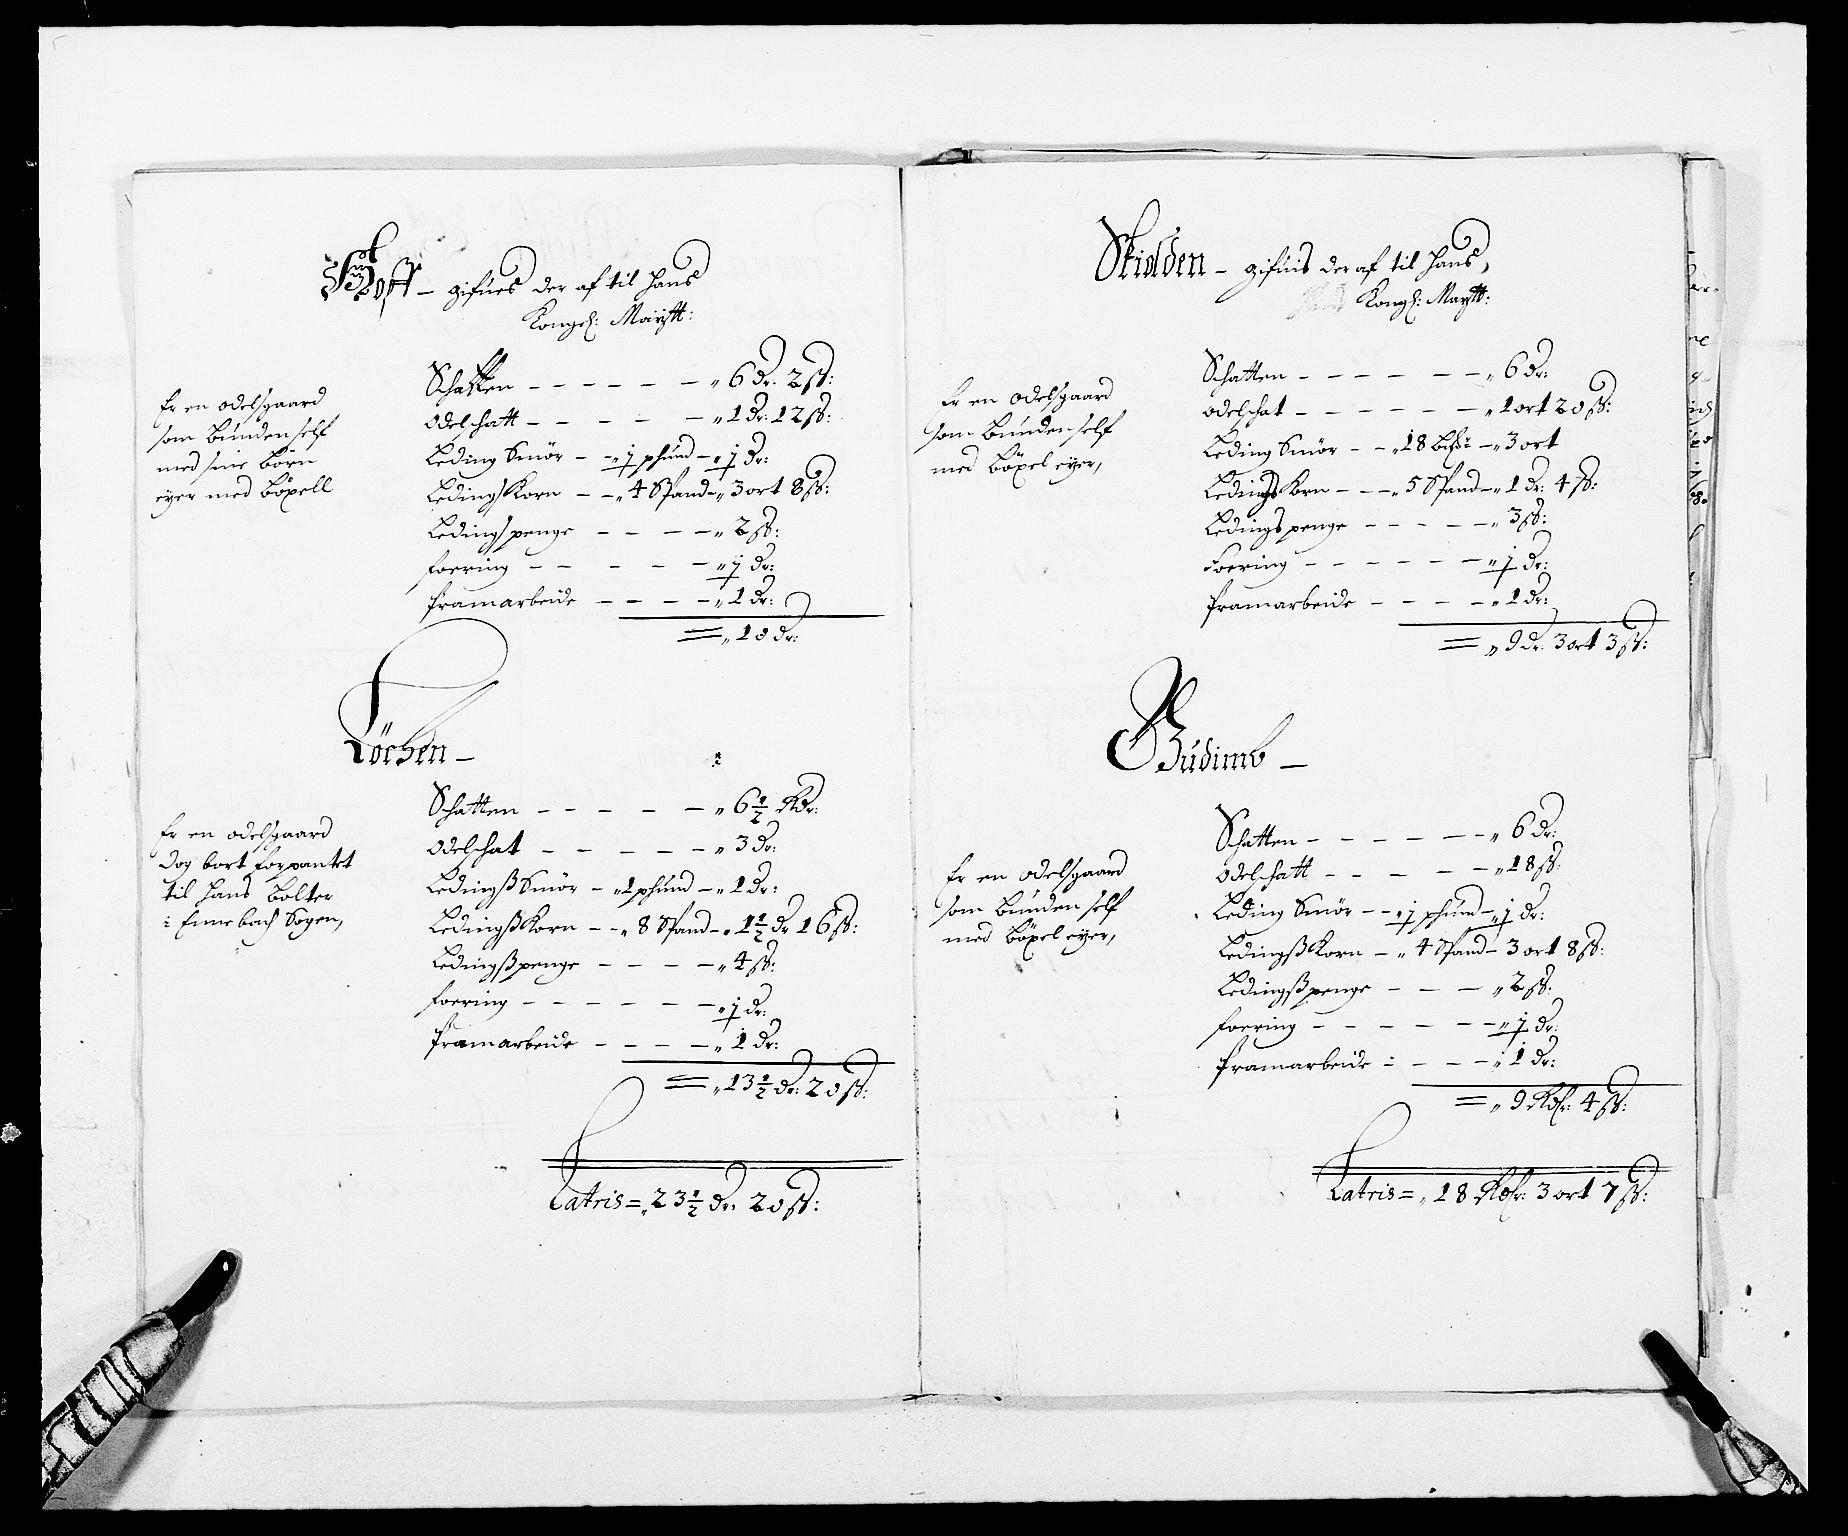 Hoff – gifues der af til Hans
Kongel: Maÿtt:
Er en odelsgaard
som Bunden self
med sine Börn
eyer med Böxell
Schatten – – – – – – „ 6 Dr: 2 ß:
Odelschatt – – – – – „ 1 Dr: 12 ß:
Leding Smör – „ ½ phund – „ ½ Dr:
Ledings Korn – – „ 4 Spand – „ 3 ort 8 ß:
Ledings penge – – – – „ 2 ß:
foering – – – – – „ ½ Dr:
framarbeide – – – – „ 1 Dr:
= „ 10 Dr:
Löchen –
Er en odelsgaard
dog bort forpantet
til Hans Bolter
i Ennebach Sogen,
Schatten – – – – – – „ 6½ Rdr:
Odelschat – – – – – „ 3 Dr:
Ledingß Smör – „ 1 phund – „ 1 Dr:
Ledingß Korn – – „ 8 Spand – „ 1½ Dr 16 ß:
Ledingß penge – – – – „ 4 ß:
foering – – – – – – „ ½ Dr:
framarbeide – – – – „ 1 Dr:
= „ 13½ Dr: 20 ß:
Latris = „ 23½ Dr: 20 ß:
Skidden – gifuis der af til Hans,
Kongl: Maytt:
Er en odelsgaard
som Bunden self
med Böxel eyer,
Schatten – – – – – – „ 6 Dr:
Odelschat – – – – – – „ 1 ort 20 ß:
Leding Smör – – „ 18 – „ 3 ort
Ledings Korn – – – „ 5 Spand – „ 1 Dr: 4 ß:
Ledings penge – – – – – „ 3 ß:
Foering – – – – – – „ ½ Dr:
framarbeide – – – – „ 1 Dr:
= „ 9 Dr: 3 ort 3 ß:
Budimb –
Er en odelsgaard
som Bunden self
med Böxel eyer,
Schatten – – – – – – „ 6 Dr:
Odelschatt – – – – – „ 18 ß:
Leding Smör – – „ ½ phund – „ ½ Dr:
Ledingß Korn – „ 4 Spand – 3 ort 8 ß:
Ledingß penge – – – „ 2 ß:
foering – – – – – – „ ½ Dr:
framarbeide : – – – „ 1 Dr:
= „ 9 Rdr: 4 ß:
Latris = „ 18 Rdr: 3 ort 7 ß: